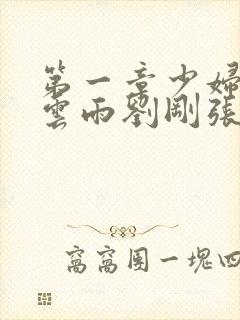 第一章少婦
雲雨劉剛張
窩窩團一塊四